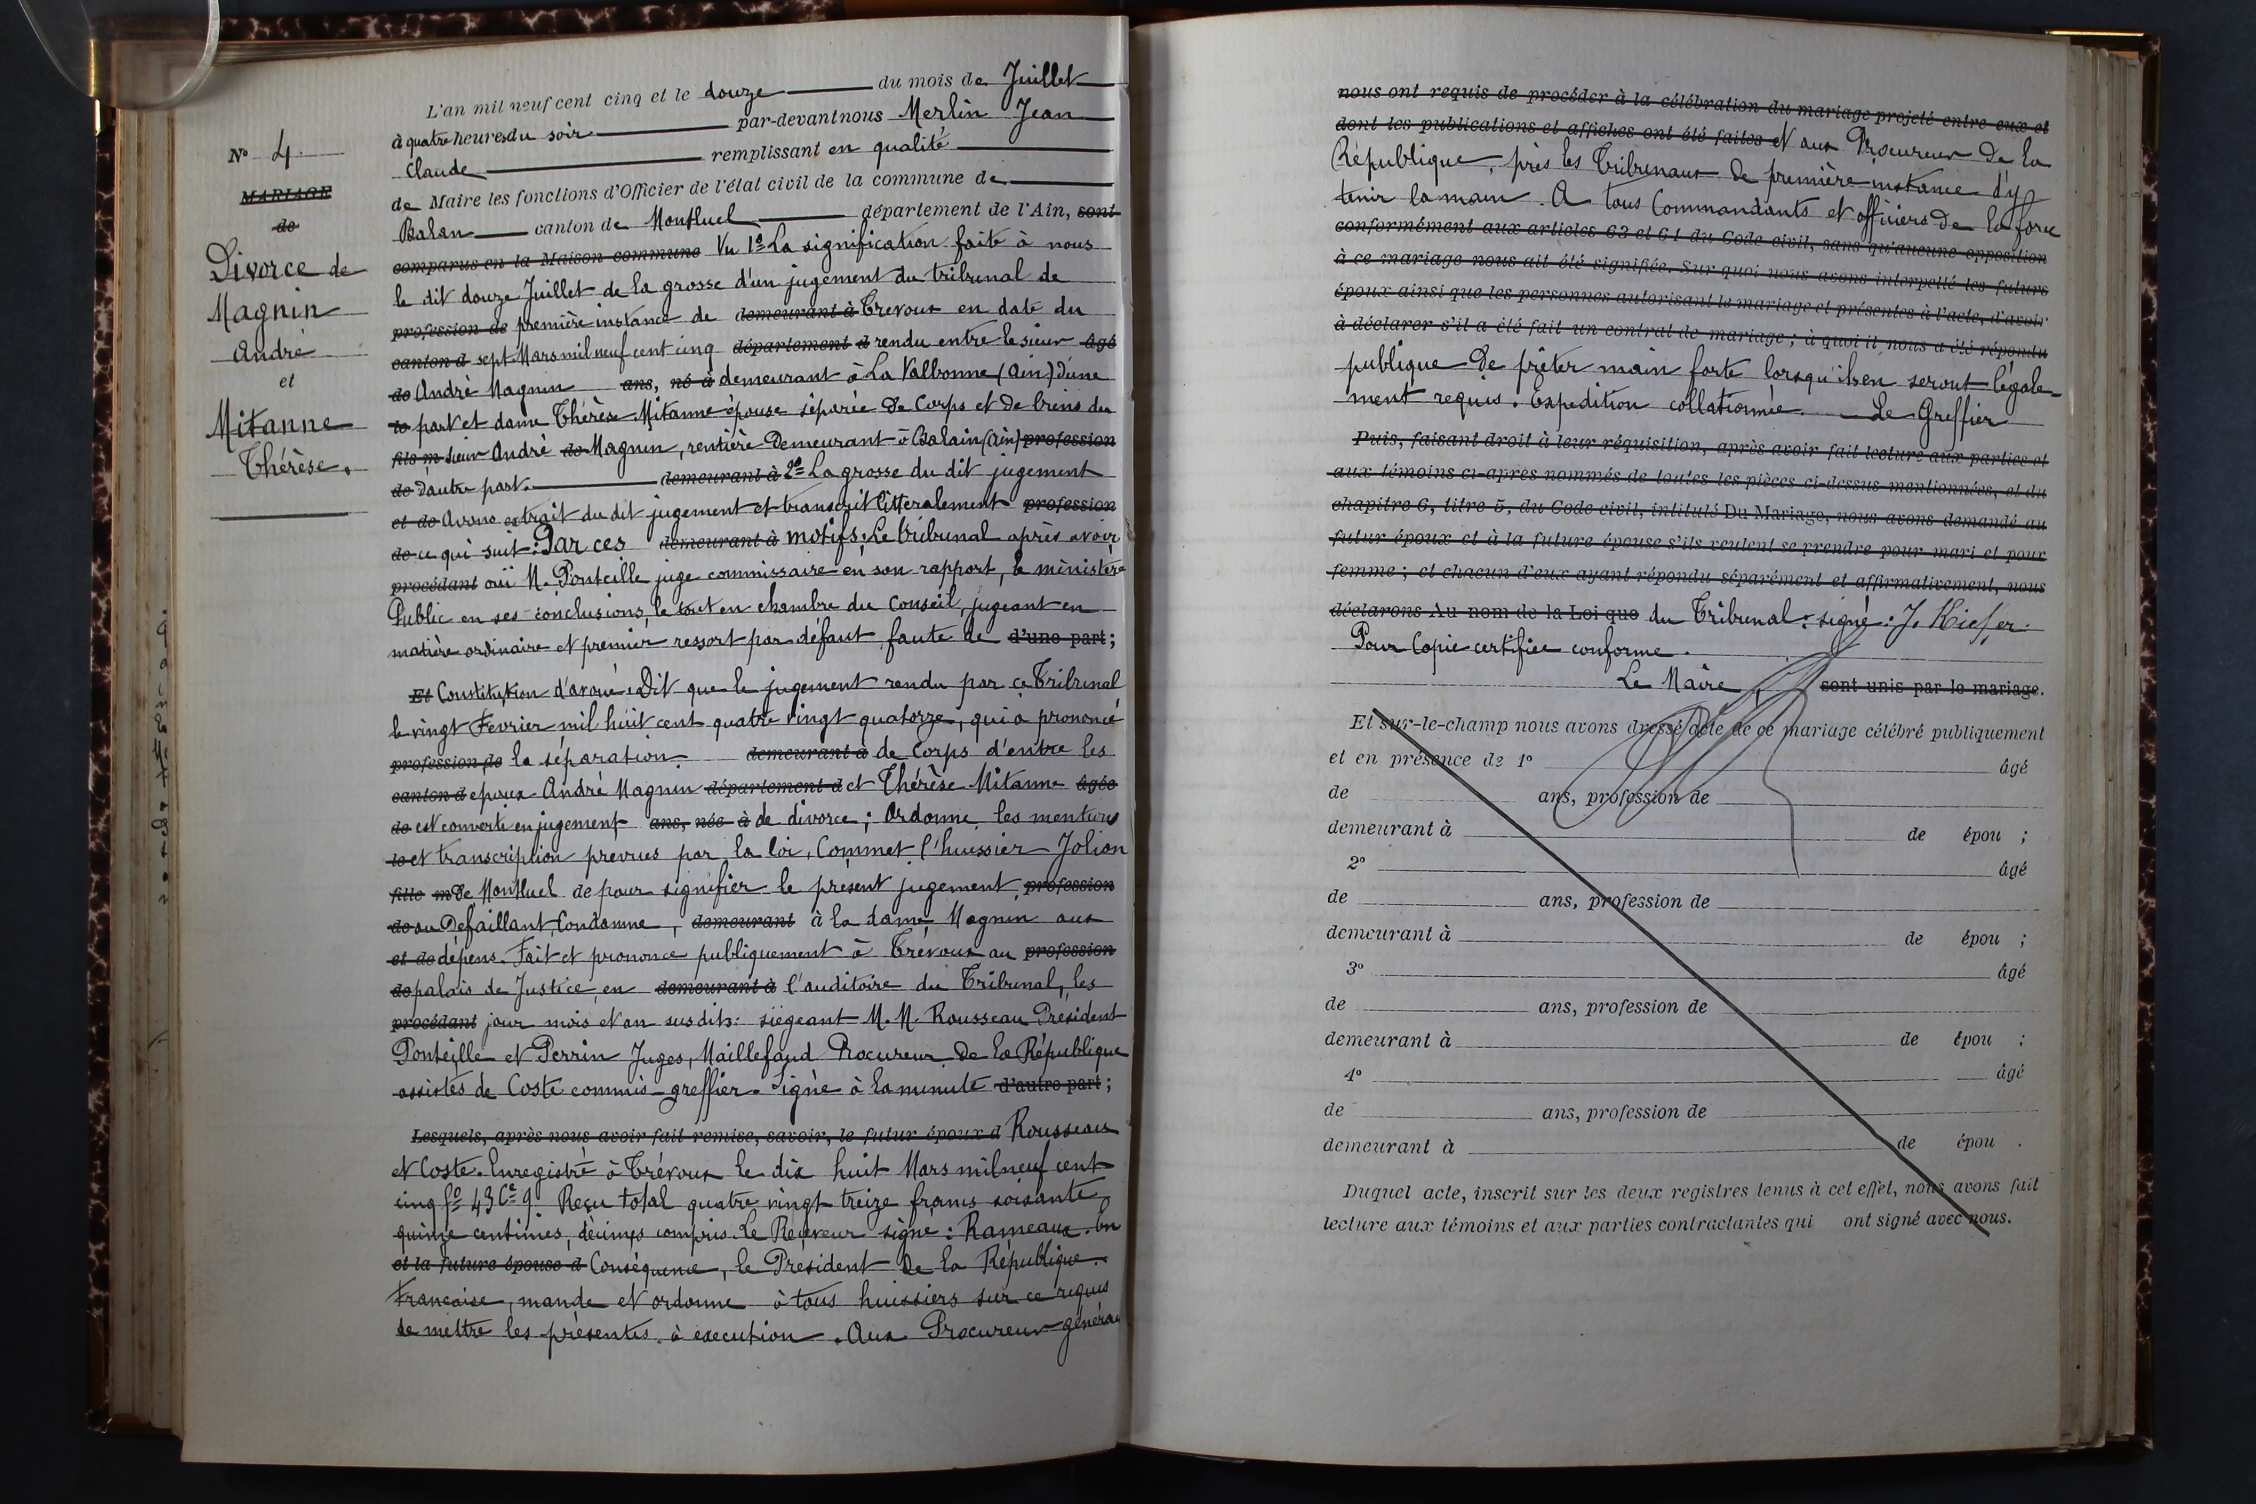 N° 4
MARIAGE
de
Divorce de
Magnin
André
et
Mitanne
Thérèse.
L'an mil neuf cent cinq et le douze du mois de Juillet
à quatre heures du soir par-devant nous Merlin Jean
Claude remplissant en qualité
de Maire les fonctions d'Officier de l'état civil de la commune de
Balan canton de Montluel département de l'Ain, sont
comparus en la Maison commune Vu 1° La signification faite à nous
le dit douze Juillet de la grosse d'un jugement du tribunal de
profession de première instance de demeurant à Trevoux en date du
canton d sept Mars mil neuf cent cinq département d rendu entre le sieur âgé
de André Magnin ans, né à demeurant à La Valbonne (Ain) d'une
le part et dame Thérèse Mitanne épouse séparée de corps et de biens du
fils m sieur André de Magnin, rentière demeurant à Balain (Ain) profession
de d'autre part. demeurant à 2° La grosse du dit jugement
et de Avons extrait du dit jugement et transcrit littéralement profession
de ce qui suit: Par ces demeurant à motifs: Le tribunal après avoir
procédant ouï M. Ponteille juge commissaire en son rapport, le ministère
Public en ses conclusions, le tout en chambre du Conseil, jugeant en
matière ordinaire et premier ressort par défaut faute de d'une part;
Et Constitution d'avoué: Dit que le jugement rendu par ce Tribunal
le vingt Fevrier mil huit cent quatre vingt quatorze, qui a prononcé
profession de la séparation demeurant à de corps d'entre les
canton d epoux André Magnin département d et Thérèse Mitanne âgée
de est converti en jugement ans, née à de divorce; Ordonne les mentions
le et transcription prevues par la loi, Commet l'huissier Jolion
fille m de Montluel de pour signifier le présent jugement profession
de au Defaillant, Condamne, demeurant à la dame Magnin aux
et de dépens. Fait et prononce publiquement à Trévoux au profession
de palais de Justice, en demeurant à l'auditoire du Tribunal, les
procédant jour mois et an susdits: siégeant M.M. Rousseau Président
Ponteille et Perrin Juges, Maillefaud Procureur de la République
assistés de Coste commis-greffier. Signé à la minute d'autre part;
Lesquels, après nous avoir fait remise, savoir, le futur époux d Rousseau
et Coste. Enregistré à Trévoux le dix huit Mars mil neuf cent
cinq f° 43 Ce 9. Reçu total quatre vingt treize francs soixante
quinze centimes, décimes compris. Le Receveur signé: Rameaux. En
et la future épouse d Conséquence, le Président de la République
Française, mande et ordonne à tous huissiers sur ce requis
de mettre les présentes à execution. Aux Procureur généraux
nous ont requis de procéder à la célébration du mariage projeté entre eux et
dont les publications et affiches ont été faites et aux Procureur de la
République, près les Tribunaux de première instance d'y
tenir la main. A tous Commandants et officiers de la force
conformément aux articles 63 et 64 du Code civil, sans qu'aucune opposition
à ce mariage nous ait été signifiée. Sur quoi nous avons interpellé les futurs
époux ainsi que les personnes autorisant le mariage et présentes à l'acte, d'avoir
à déclarer s'il a été fait un contrat de mariage; à quoi il nous a été répondu
publique de prêter main forte lorsqu'ils en seront légale-
ment requis. Expédition collationnée. Le Greffier
Puis, faisant droit à leur réquisition, après avoir fait lecture aux parties et
aux témoins ci-après nommés de toutes les pièces ci-dessus mentionnées, et du
chapitre 6, titre 5, du Code civil, intitulé Du Mariage, nous avons demandé au
futur époux et à la future épouse s'ils veulent se prendre pour mari et pour
femme; et chacun d'eux ayant répondu séparément et affirmativement, nous
déclarons Au nom de la Loi que du Tribunal: signé: J. Kiefer.
Pour Copie certifiée conforme.
Le Maire, sont unis par le mariage.
Et sur-le-champ nous avons dressé acte de ce mariage célébré publiquement
et en présence de 1° âgé
de ans, profession de
demeurant à de épou ;
2° âgé
de ans, profession de
demeurant à de épou ;
3° âgé
de ans, profession de
demeurant à de épou ;
4° âgé
de ans, profession de
demeurant à de épou .
Duquel acte, inscrit sur les deux registres tenus à cet effet, nous avons fait
lecture aux témoins et aux parties contractantes qui ont signé avec nous.